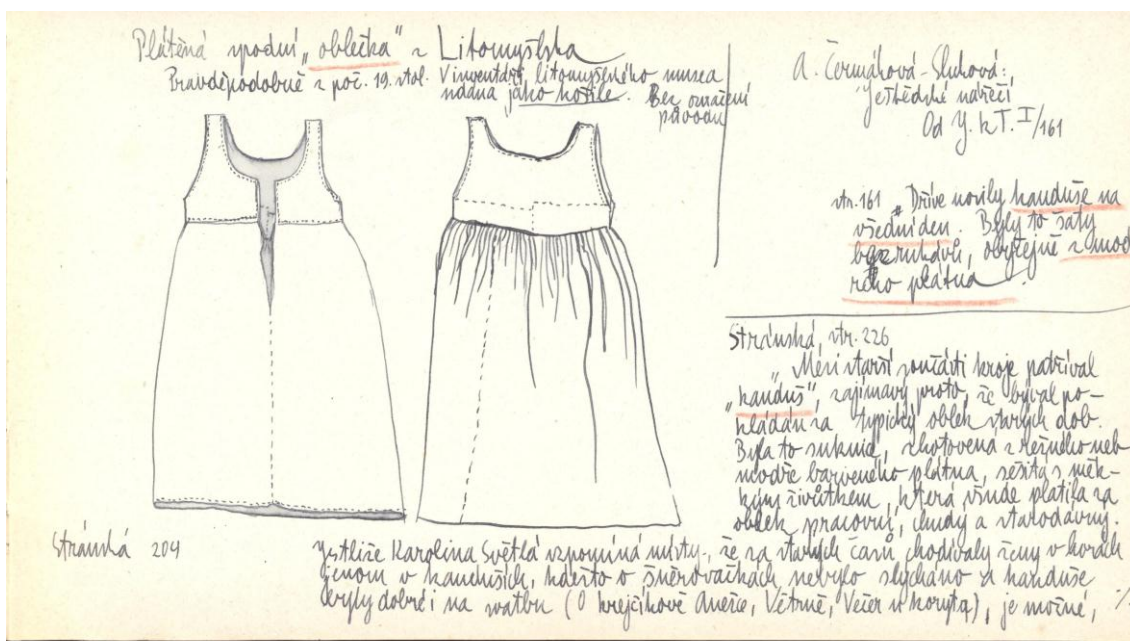 Plátěná spodní „oblečka" z Litomyšlska
Pravděpodobně z poč. 19. stol. V inventáři litomyšlského musea
udána jako košile. Bez označení
původu
A. Čermáková-Sluková:
Ještědské nářečí
Od J. k T. I/161
str. 161 „Dříve nosily kanduše na
všední den. Byly to šaty
bez rukávů, obyčejně z mod
rého plátna."
Stránská, str. 226
„Mezi starší součásti kroje patříval
„kanduš", zajímavý proto, že býval po-
kládán za typický oblek starých dob.
Byla to suknice, zhotovená z režného neb
modře barveného plátna, sešitá s měk-
kým životkem, která všude platila za
oblek pracovní, chudý a starodávný.
Stránská 204
Jestliže Karolina Světlá vzpomíná místy, že za starých časů chodívaly ženy v horách
jenom v kanduších, kdežto o šněrovačkách nebylo slýcháno a kanduše
byly dobré i na svatbu (O krejčíkově Anežce, Větrně, Večer u koryta), je možné, ./.